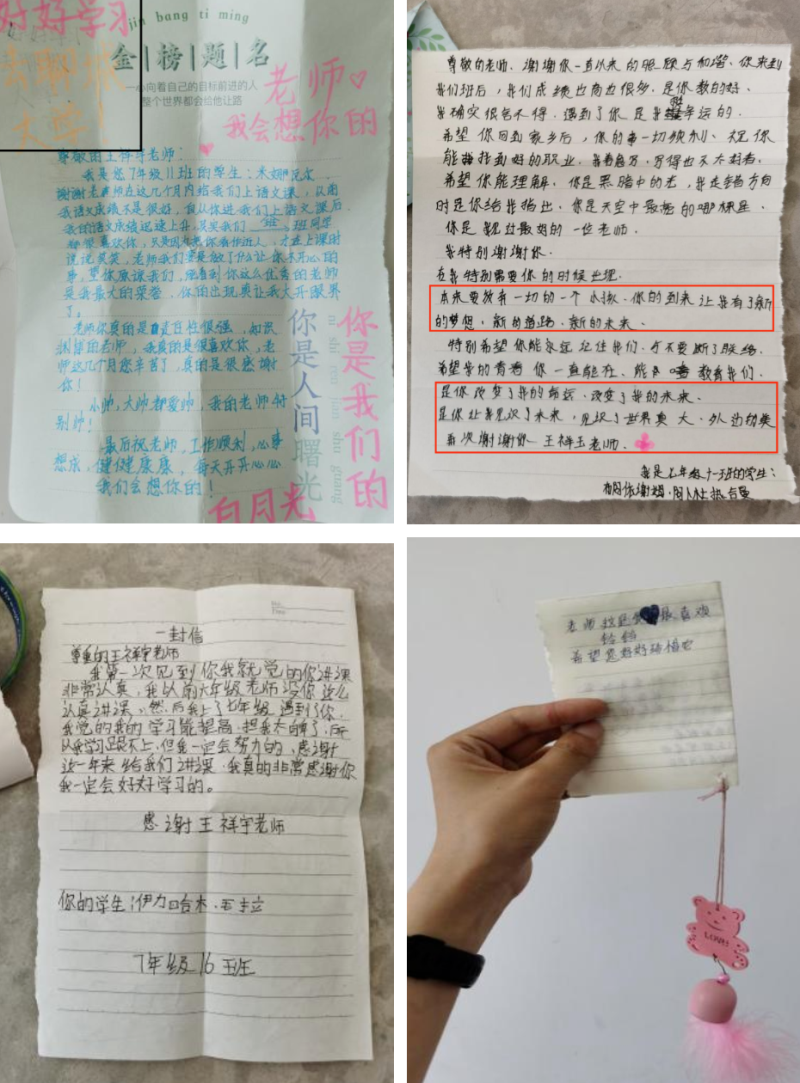 好好学习
去聊城
大学!
jin bang ti ming
金榜题名
心向着自己的目标前进的人
整个世界都会给他让路
老师
我会想你的
尊敬的王祥宇老师:
我是您7年级11班的学生:米娜
谢谢老师在这几个月内给我们上语文课,以前
我语文成绩不是很好,自从你进我们上语文课后
我的语文成绩迅速上升,其实我们班 班同学
都很喜欢你,只是因为您你很作近人,才在上课时
说说笑笑,老师我们要是做了什么让你不开心的
事,望你原谅我们,能看到你这么优秀的老师
是我最大的荣誉,你的出现真让我大开眼界
了。
老师你真的是自是自性很强,知识
渊博的老师,我真的是很喜欢你,老
师这几个月您辛苦了,真的是很感谢
你!
小帅,大帅都爱帅,我的老师特
别帅!
最后祝老师,工作顺利,心事
想成,健健康康,每天开开心心
我们会想你的!
你是人间曙光
ni shi ren jian shu guang
你是我们的
白月光
尊敬的老师,谢谢你一直以来的照顾与和谐,你来到
我们班后,我们成绩也高也很多,是你教的好。
我确实很舍不得,遇到了你是我很幸运的。
希望你回到家乡后,你的事一切顺利,祝你
能找到好的职业,我着急万,写得也不太好看。
希望你能理解,你是黑暗中的光,我走错方向
时是你给我指出,你是天空中最亮的哪颗星。
你是我见过最好的一位老师。
我特别谢谢你。
在我特别需要你的时候出现。
本来要放弃一切的一个小孩、你的到来让我有了新
的梦想,新的道路、新的未来。
特别希望你能永远记住我们,千不要断了联络。
希望我的青春你一直能在、能 教着我们。
是你改变了我的命运、改变了我的未来。
是你让我见识了未来,见识了世界真大、外边的美
再次谢谢你 王祥玉老师。
我是七年级十一班的学生:
一封信
尊重的王祥宇老师
我第一次见到你我就觉的你讲课
非常认真,我以前六年级老师没你这么
认真讲课、然后我上了七年级遇到了你。
我觉的我的学习能提高、把我太自卑了,所
以我学习跟不上、但我一定会努力的、感谢
这一年来给我们讲课、我真的非常感谢你
我一定会好好学习的。
感谢王祥宇老师
你的学生:伊力哈木、
7年级16班
老师这是我 最喜欢
给您
希望您好好珍惜它
LOVE!